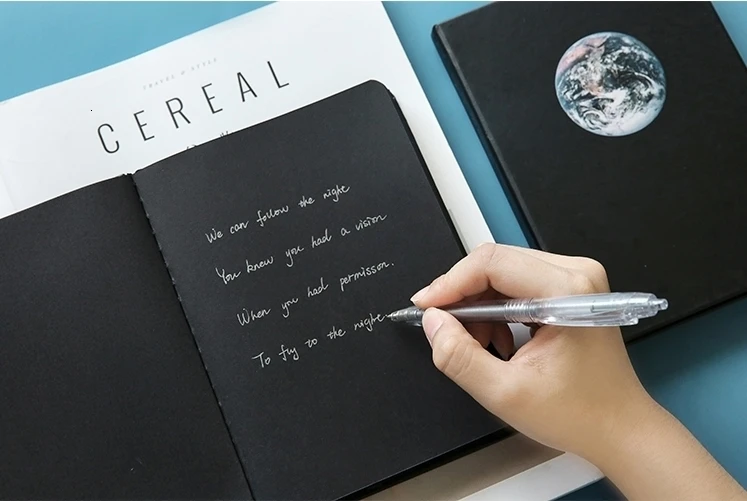 TRAVEL & STYLE
CEREAL
We can follow the night
You knew you had a vision
When you had permisson.
To fly to the night